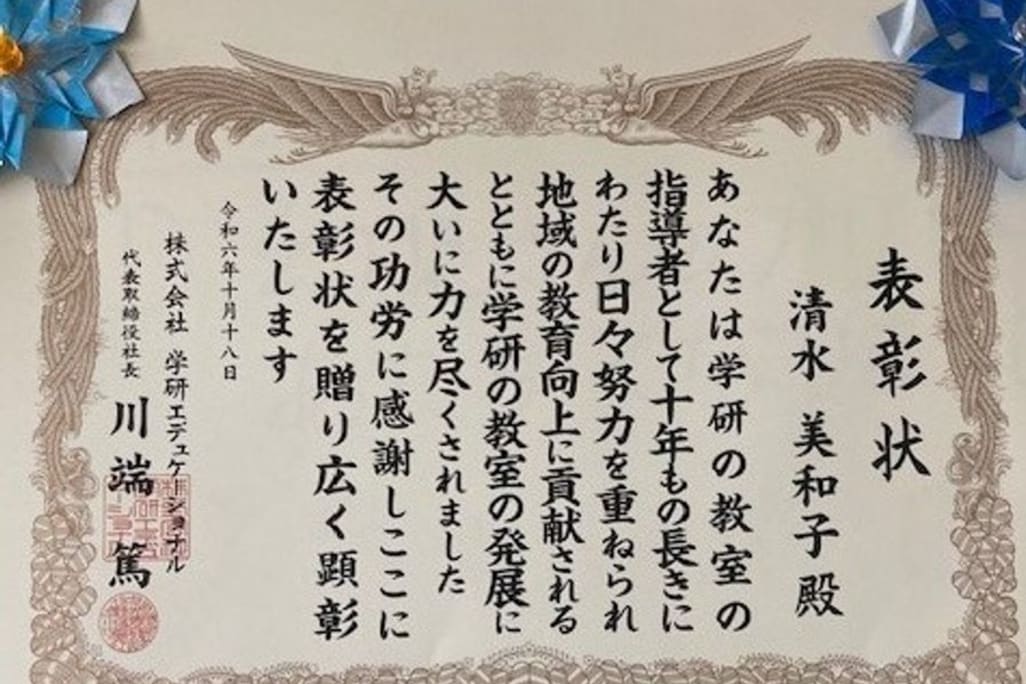 表彰状
清水 美和子 殿
あなたは学研の教室の
指導者として十年もの長きに
わたり日々努力を重ねられ
地域の教育向上に貢献される
とともに学研の教室の発展に
大いに力を尽くされました
その功労に感謝しここに
表彰状を贈り広く顕彰
いたします
令和六年十月十八日
株式会社 学研エデュケーショナル
代表取締役社長 川端 篤